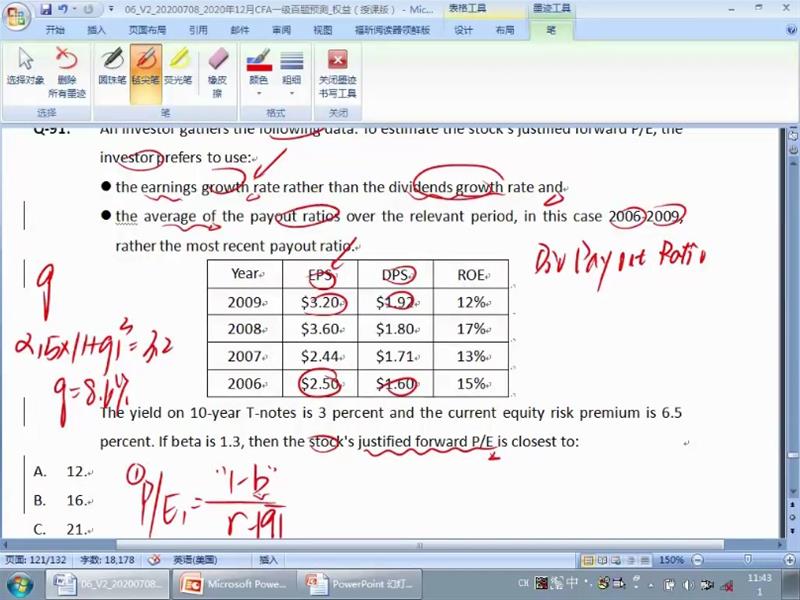 06_V2_20200708_2020年12月CFA一级百题预测_权益（授课版） - Mic...
表格工具
墨迹工具
开始 插入 页面布局 引用 邮件 审阅 视图 福昕阅读器领鲜版 设计 布局 笔
选择对象 删除所有墨迹 圆珠笔 毡尖笔 荧光笔 橡皮擦 颜色 粗细 关闭墨迹书写工具
选择 笔 格式 关闭
Q-91. An investor gathers the following data. To estimate the stock's justified forward P/E, the
investor prefers to use:
● the earnings growth rate rather than the dividends growth rate and
● the average of the payout ratios over the relevant period, in this case 2006-2009,
rather the most recent payout ratio.
Div Payout Ratio
Year EPS DPS ROE
2009 $3.20 $1.92 12%
2008 $3.60 $1.80 17%
2007 $2.44 $1.71 13%
2006 $2.50 $1.60 15%
g
g=8.6%
The yield on 10-year T-notes is 3 percent and the current equity risk premium is 6.5
percent. If beta is 1.3, then the stock's justified forward P/E is closest to:
A. 12.
B. 16.
C. 21.
① P/E₁ = "1-b"
r-g
页面: 121/132 字数: 18,178 英语(美国) 插入 150%
06_V2_20200708... Microsoft Powe... PowerPoint 幻灯... CH 中 11:43
1